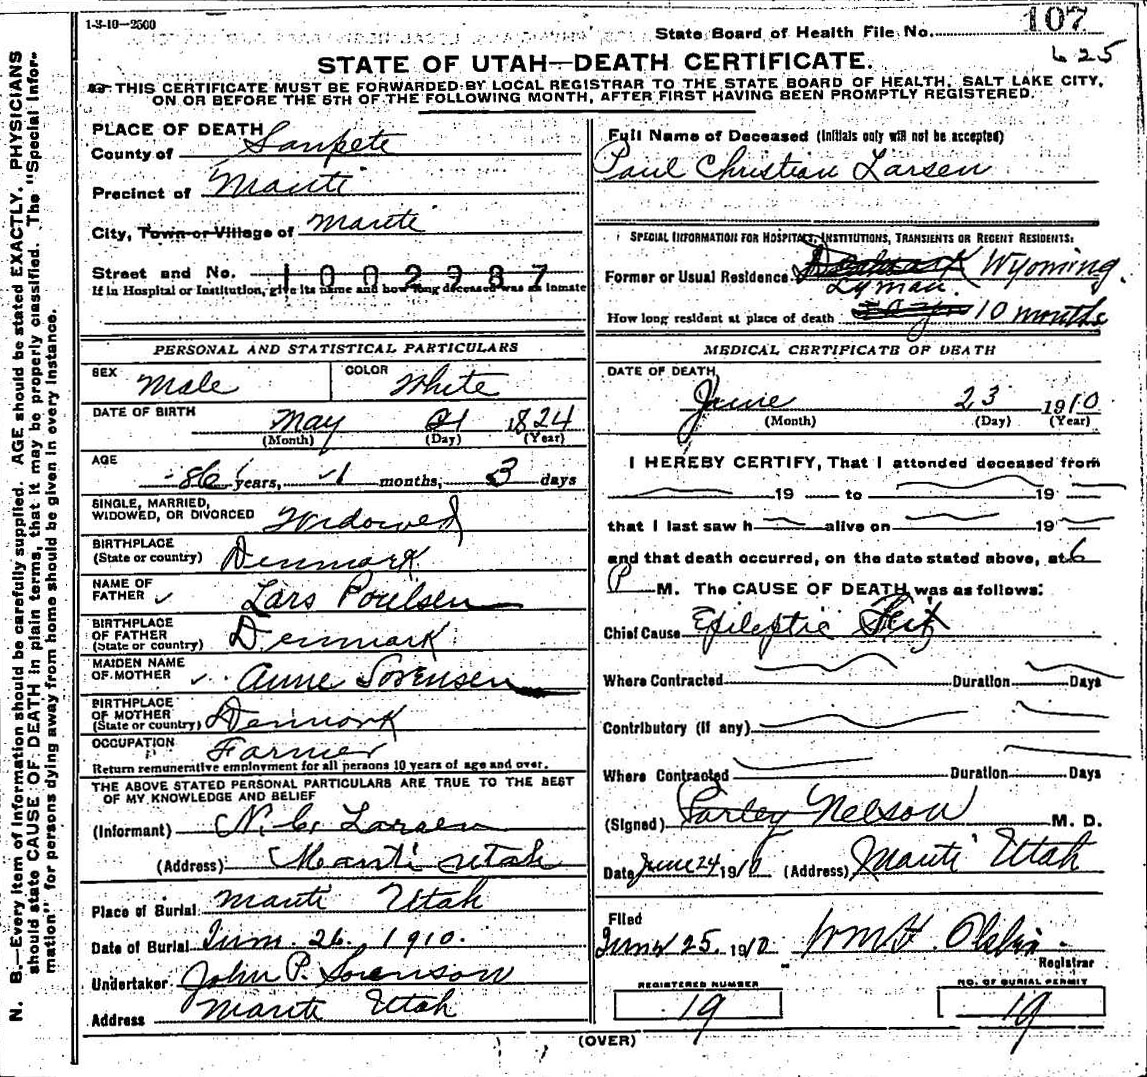 1-3-10-2500
State Board of Health File No. 107
625
STATE OF UTAH—DEATH CERTIFICATE.
THIS CERTIFICATE MUST BE FORWARDED BY LOCAL REGISTRAR TO THE STATE BOARD OF HEALTH, SALT LAKE CITY,
ON OR BEFORE THE 5TH OF THE FOLLOWING MONTH, AFTER FIRST HAVING BEEN PROMPTLY REGISTERED.
PLACE OF DEATH
County of Sanpete
Precinct of Manti
City, Town or Village of Manti
Street and No.
1002987
If in Hospital or Institution, give its name and how long deceased was an inmate
PERSONAL AND STATISTICAL PARTICULARS
SEX Male COLOR White
DATE OF BIRTH May 21 1824
(Month) (Day) (Year)
AGE 86 years, 1 months, 3 days
SINGLE, MARRIED,
WIDOWED, OR DIVORCED Widowed
BIRTHPLACE
(State or country) Denmark
NAME OF
FATHER Lars Poulsen
BIRTHPLACE
OF FATHER
(State or country) Denmark
MAIDEN NAME
OF MOTHER Anne Sorensen
BIRTHPLACE
OF MOTHER
(State or country) Denmark
OCCUPATION Farmer
Return remunerative employment for all persons 10 years of age and over.
THE ABOVE STATED PERSONAL PARTICULARS ARE TRUE TO THE BEST
OF MY KNOWLEDGE AND BELIEF
(Informant) N. C. Larsen
(Address) Manti Utah
Place of Burial Manti Utah
Date of Burial Jun. 26, 1910.
Undertaker John P. Sorenson
Address Manti Utah
Full Name of Deceased (Initials only will not be accepted)
Paul Christian Larsen
SPECIAL INFORMATION FOR HOSPITALS, INSTITUTIONS, TRANSIENTS OR RECENT RESIDENTS:
Former or Usual Residence Wyoming.
Lyman.
How long resident at place of death 10 months
MEDICAL CERTIFICATE OF DEATH
DATE OF DEATH
June 23 1910
(Month) (Day) (Year)
I HEREBY CERTIFY, That I attended deceased from
19 to 19
that I last saw h alive on 19
and that death occurred, on the date stated above, at 6
P M. The CAUSE OF DEATH was as follows:
Chief Cause Epileptic
Where Contracted Duration Days
Contributory (if any)
Where Contracted Duration Days
(Signed) Parley Nelson M. D.
Date June 24 1910 (Address) Manti Utah
Filed
June 25, 1910 Wm F.
Registrar
REGISTERED NUMBER
19
NO. OF BURIAL PERMIT
19
(OVER)
N. B.—Every item of information should be carefully supplied. AGE should be stated EXACTLY. PHYSICIANS
should state CAUSE OF DEATH in plain terms, that it may be properly classified. The "Special Infor-
mation" for persons dying away from home should be given in every instance.